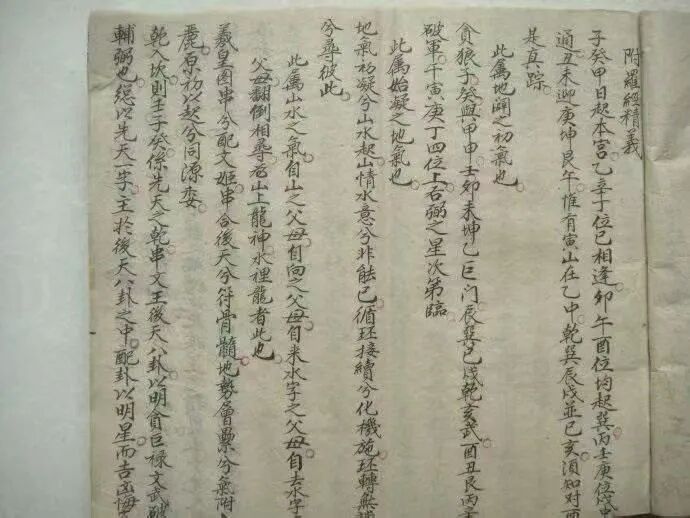 附羅經精義
子癸甲日起本宮乙辛子位巳相逢卯午酉位均起巽丙壬庚位戌中
通丑未迎庚坤艮午惟有寅山在乙中乾巽辰戌並巳亥須知对面
是真踪
此属地闢之初氣也
貪狼子癸與甲申壬卯未坤乙巨门辰巽巳戌乾亥武酉丑艮丙辛
破軍午寅庚丁四位上右弼之星次第臨
此属始凝之地氣也
地氣初凝兮山水起山情水意兮非能已循环接續兮化機施环轉無
兮尋彼此
此属山水之氣自山之父母自向之父母自来水字之父母自去水字
父母翻倒相尋名山上龍神水裡龍者此也
羲皇图串兮配文姬串合後天兮符骨髓地勢會纍兮氣附
麗原初以起兮同源委
乾入坎則壬子癸係先天之乾串文王後天八卦以明貪巨禄文武破
輔弼也總以先天一字王於後天八卦之中配卦以明星而吉凶悔